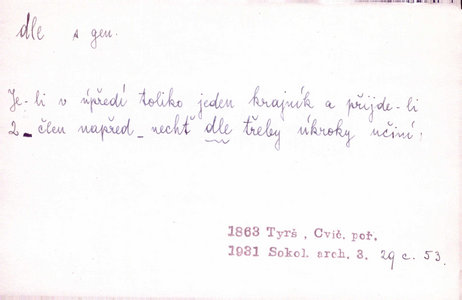 dle s gen.
Je-li v úpředí toliko jeden krajník a přijde-li
2_ člen napřed_nechť dle třeby úkroky učiní;
1863 Tyrš, Cvič. poř.
1931 Sokol. arch. 3. 29 c. 53.